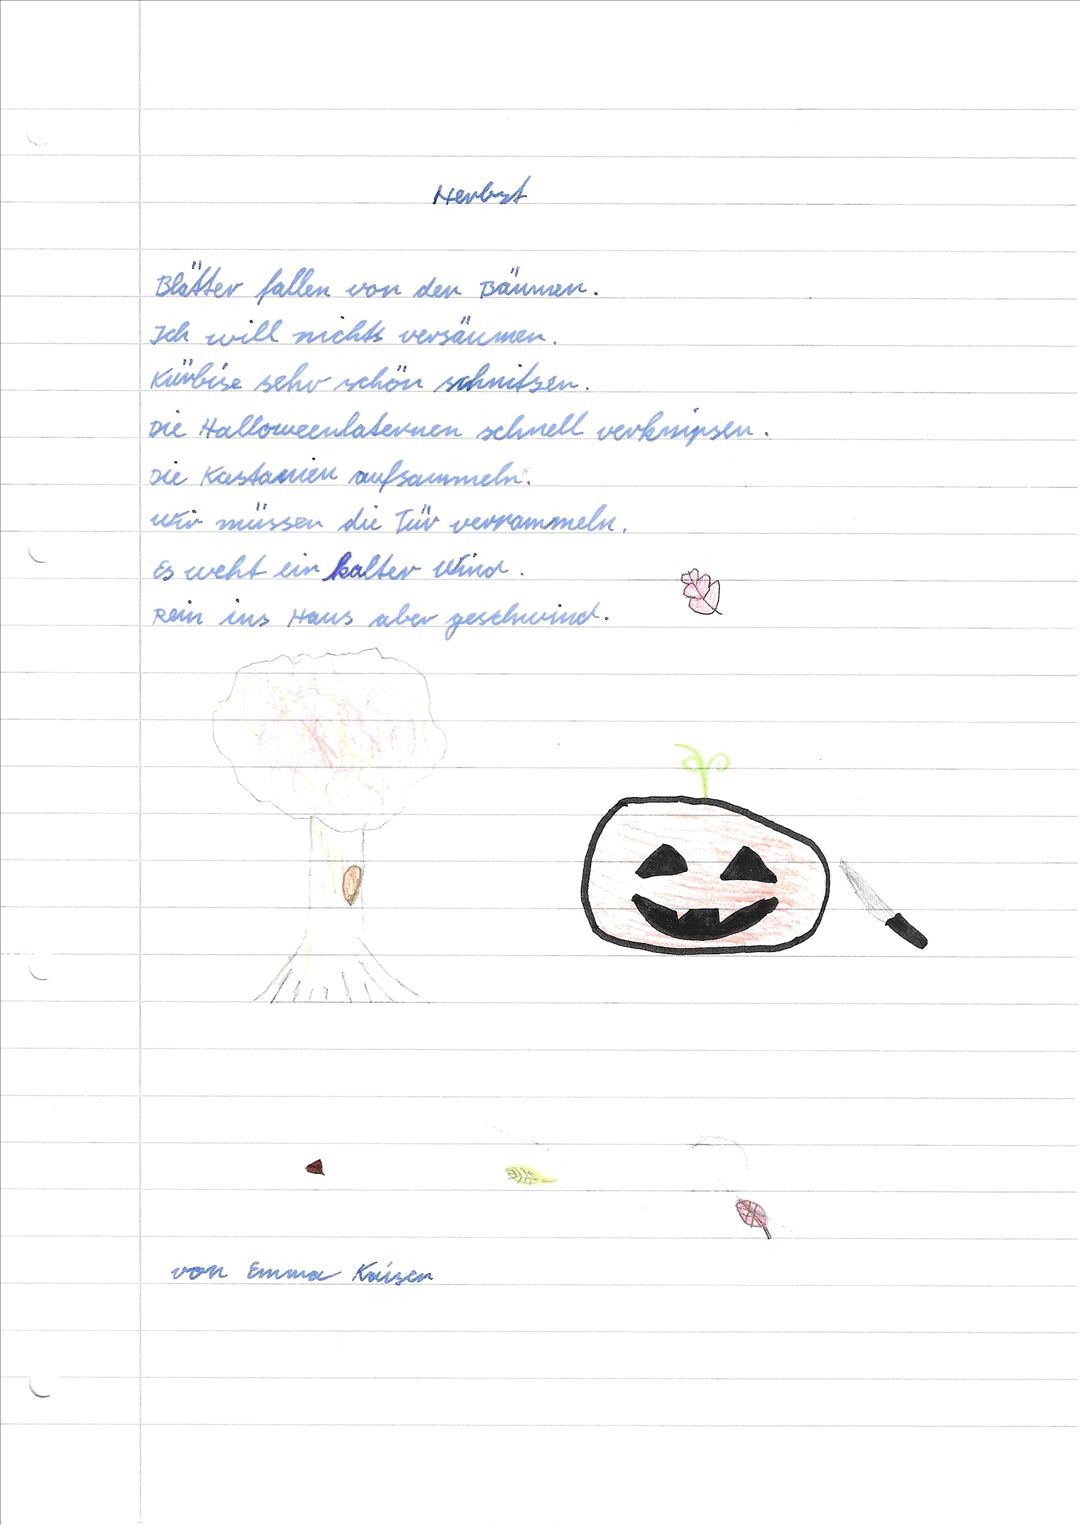 Herbst
Blätter fallen von den Bäumen.
Ich will nichts versäumen.
Kürbise sehr schön schnitzen.
Die Halloweenlaternen schnell verknipsen.
Die Kastanien aufsammeln.
Wir müssen die Tür verrammeln.
Es weht ein kalter Wind.
Rein ins Haus aber geschwind.
von Emma Kaiser